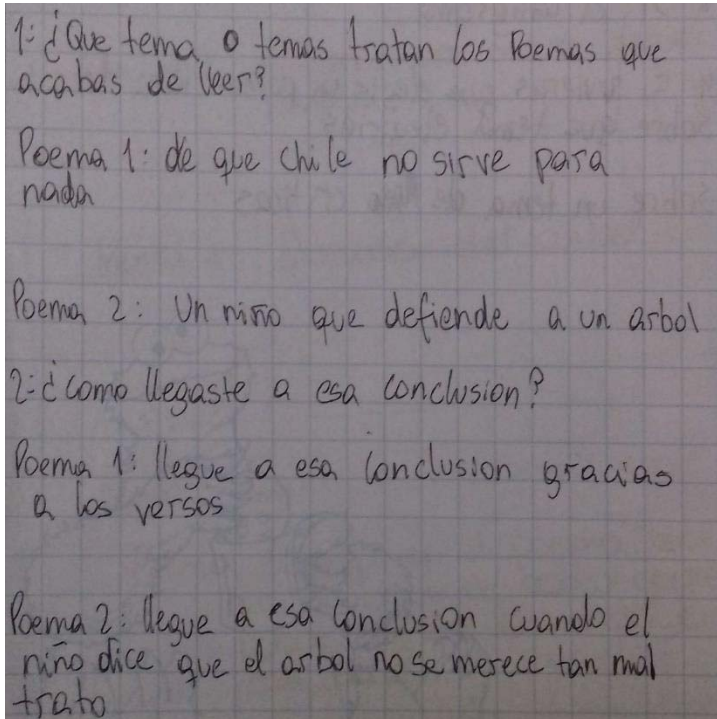 1: ¿Que tema o temas tratan los Poemas que
acabas de leer?
Poema 1: de que chile no sirve para
nada
Poema 2: Un niño que defiende a un arbol
2: ¿como llegaste a esa conclusion?
Poema 1: llegue a esa conclusion gracias
a los versos
Poema 2: llegue a esa conclusion cuando el
niño dice que el arbol no se merece tan mal
trato